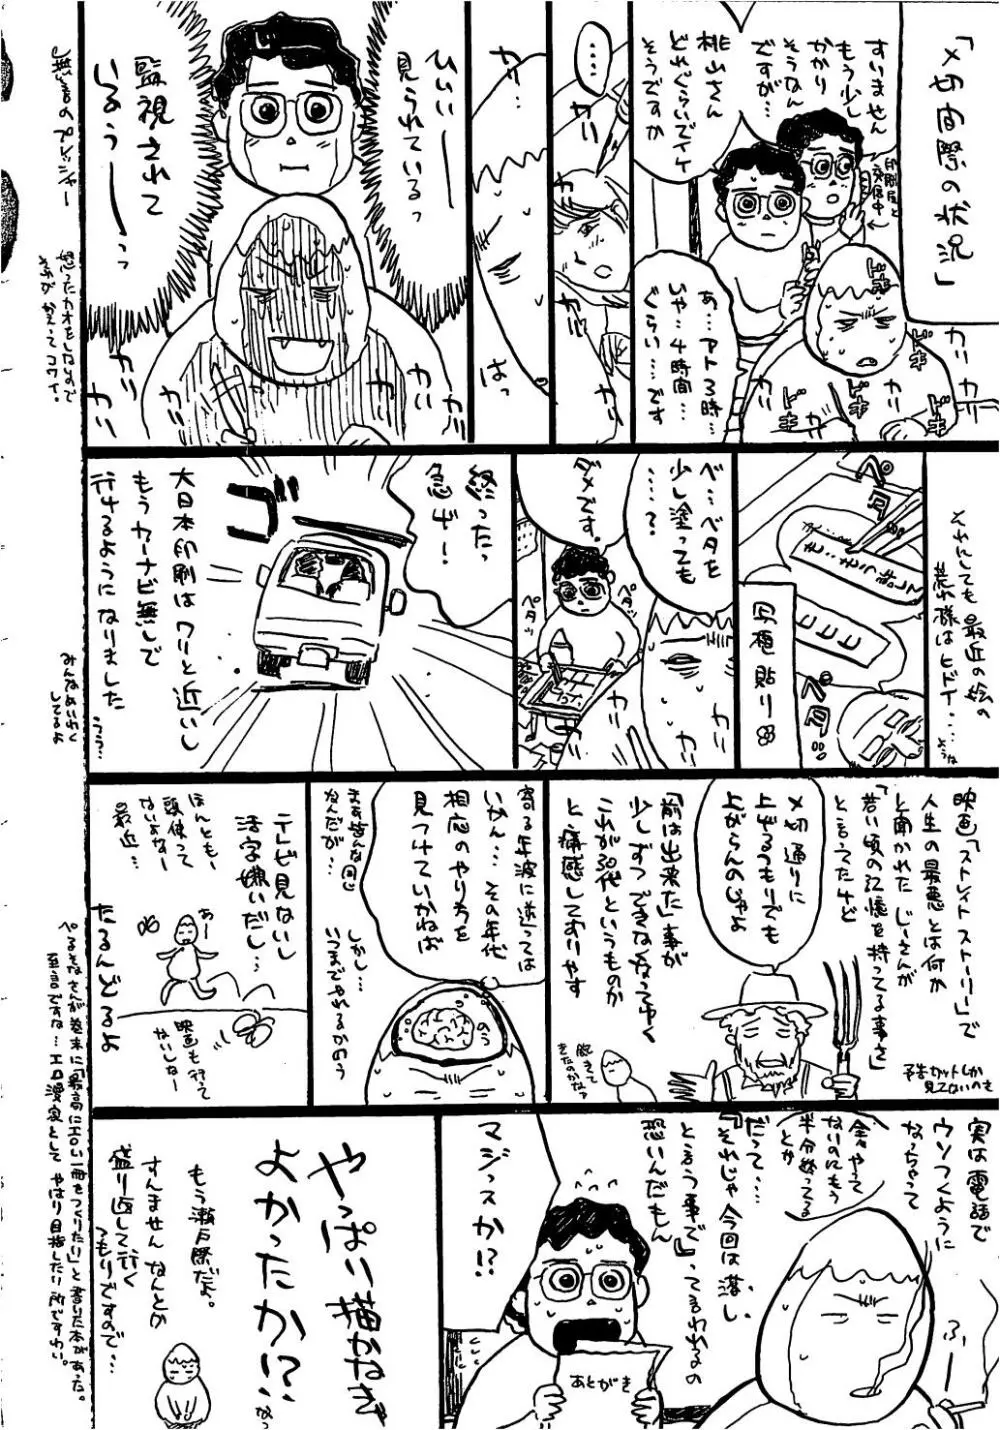 「〆切間際の状況」
すいません
もう少し
かかり
そうなん
ですが…
印刷屋と
交信中
桃山さん
どれぐらいでイケ
そうですか
ドキ
ドキ
ドキ
ドキ
ドキ
カリ
カリ
カリ
あ…アト3時…
いや…4時間…
ぐらい…です
……
カリ
カリ
カリ
カリ
はっ
ひいいー
見られているっ
監視されて
いるうーーっ
カリ
カリ
カリ
カリ
無言のプレッシャー
怒ったカオをしないので
かえってコワイ…
それにしても最近の絵の
荒れ様はヒドイ…
ような
ペタ
写植貼り
ペタ
ベ…ベタを
少し塗っても
……?
ダメです。
ペタッ
ペタッ
カリ
カリ
終わったっ
急げー!
ゴ
大日本印刷はワリと近いし
もうカーナビ無しで
行けるようになりました
ううう…
みんなめいわく
してるよ
映画「ストレイトストーリー」で
人生の最悪とは何か
と聞かれたじいさんが
「若い頃の記憶を持ってる事さ」
と言ってたけど
予告カットしか
見てないのを
〆切通りに
上げるつもりでも
上がらんのじゃよ
「前は出来た」事が
少しずつできなくなってゆく
これが30代というものか
と、痛感しておりやす
飽きて
きたのかなァ
寄る年波に逆っては
いかん…その年代
相応のやり方を
見つけていかねば
のう
まあ皆んな同じ
なんだが…
しかし…
いつまでやれるかのう
テレビ見ないし
活字嫌いだし…
ほんともー
頭使って
ないよなー
最近…
あー
映画も行って
ないしなー
たるんどるよ
実は電話で
ウソつくように
なっちゃって
全然やって
ないのにもう
半分終ってる
とか
だって…
「それじゃ今回は落し
という事で」って言われるの
恐いんだもん
ふー
マジっスか!?
あとがき
やっぱ描かなきゃ
よかったか!?
な…
もう瀬戸際だよ。
すんませんなんとか
盛り返して行く
つもりですので…
ぺるそなさんが巻末に「最高にエロい一冊をつくりたい」と書いた本があった。
至言ですな…エロ漫家として やはり目指したい所ですわい。